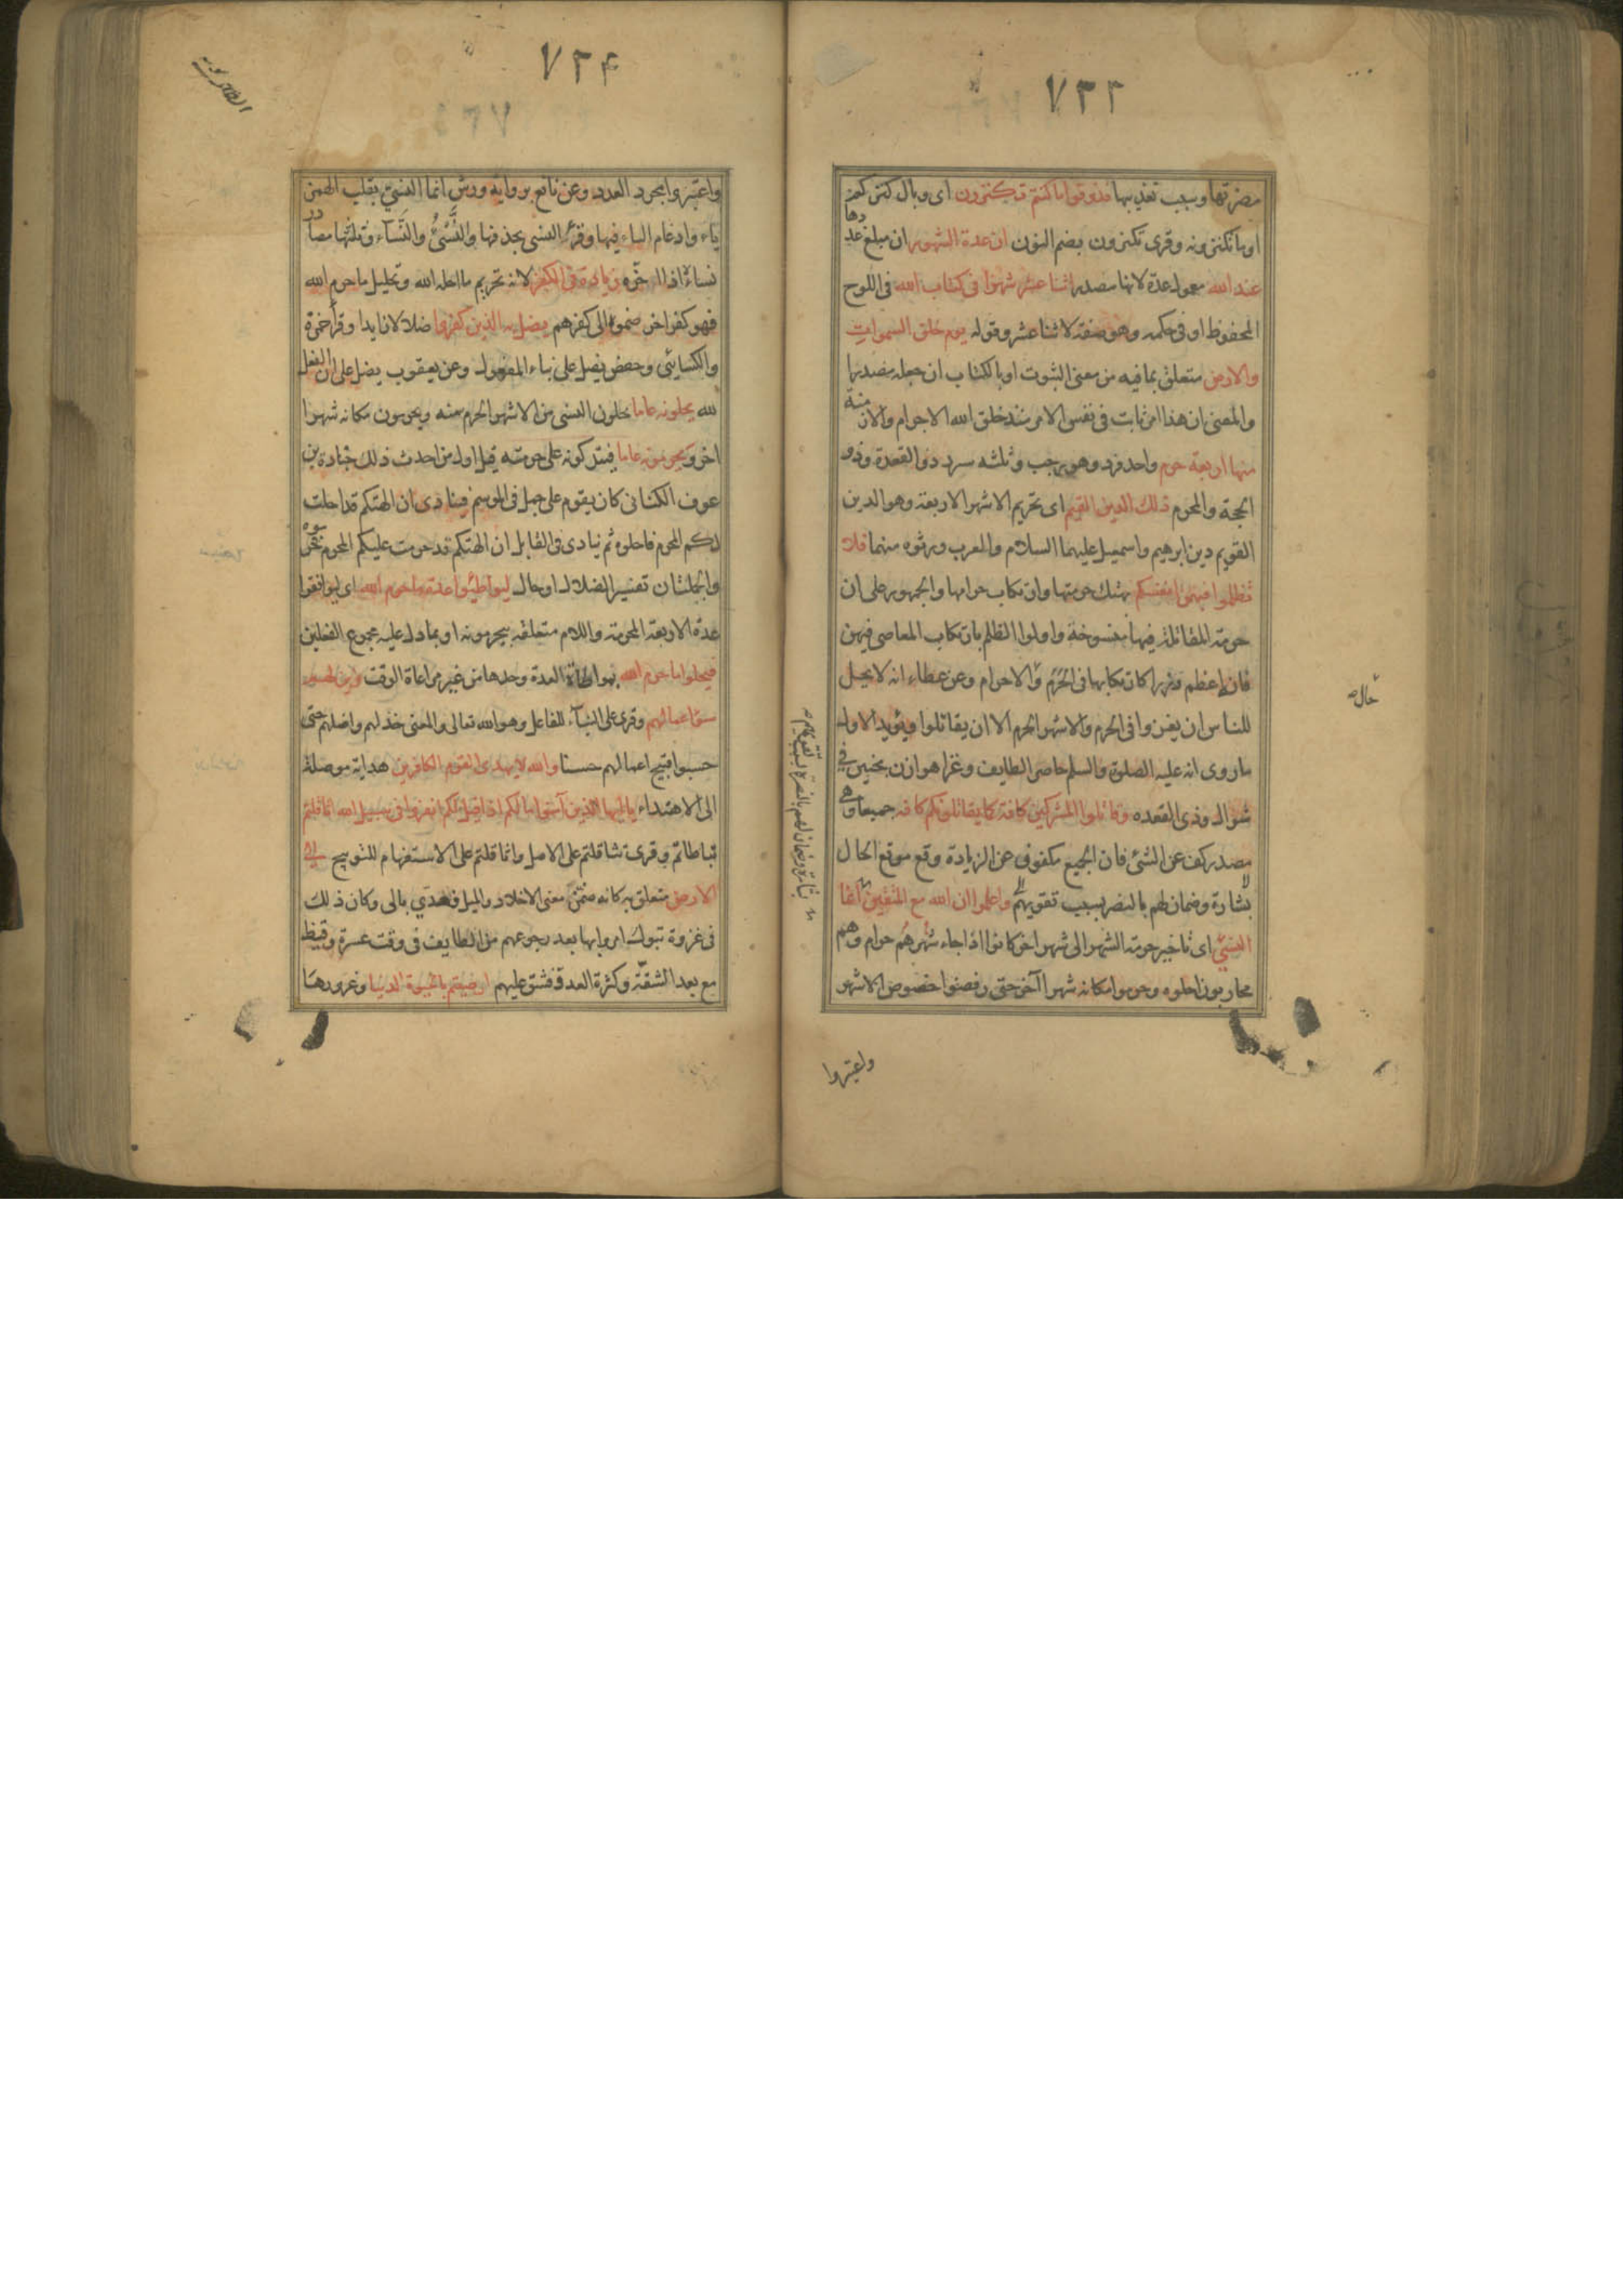 ٧٣٣
مضرتها وسبب تعذيبها فذوقوا ما كنتم تكنزون اى وبال كنزكم
او ما تكنزونه وقرى تكنزون بضم النون ان عدة الشهور اى مبلغ عددها
عند الله معمول عدة لانها مصدر اثنا عشر شهرا فى كتاب الله فى اللوح
المحفوظ او فى حكمه وهو صفة لاثنا عشر وقوله يوم خلق السموات
والارض متعلق بما فيه من معنى الثبوت او بالكتاب ان جعل مصدرا
والمعنى ان هذا امر ثابت فى نفس الامر منذ خلق الله الاجرام والازمنة
منها اربعة حرم واحد فرد وهو رجب وثلثه سرد ذو القعدة وذو
الحجة والمحرم ذلك الدين القيم اى تحريم الاشهر الاربعة وهو الدين
القويم دين ابرهيم واسمعيل عليهما السلام والعرب ورثوه منهما فلا
تظلموا فيهن انفسكم بهتك حرمتها وارتكاب حرامها والجمهور على ان
حرمة المقاتلة فيها منسوخة واولوا الظلم بارتكاب المعاصى فيهن
فانه اعظم وزرا كارتكابها فى الحرم والاحرام وعن عطاء انه لا يحل
للناس ان يغزوا فى الحرم والاشهر الحرم الا ان يقاتلوا ويؤيد الاول
ما روى انه عليه الصلوة والسلم حاصر الطايف وغزا هوازن بحنين فى
شوال وذى القعده وقاتلوا المشركين كافة كما يقاتلونكم كافه جميعا وهى
مصدر كف عن الشئ فان الجميع مكفوف عن الزيادة وقع موقع الحال
بشارة وضمان لهم بالنصر بسبب تقويهم واعلموا ان الله مع المتقين انما
النسئ اى تاخير حرمة الشهر الى شهر اخر كانوا اذا جاء شهرهم حرام وهم
محاربون احلوه وحرموا مكانه شهرا آخر حتى رفضوا خصوص الاشهر
حال
بشارة وضمان لهم بالنصرة بسبب تقويهم
واعتبروا
٧٣۴
واعتبروا مجرد العدد وعن نافع برواية ورش انما النسئ بقلب الهمزة
ياء وادغام الياء فيها وقرئ النسى بحذفها والنسئ والنسآء وثلثتها مصادر
نساءه اذا اخره زيادة فى الكفر لانه تحريم ما احله الله وتحليل ما حرم الله
فهو كفر اخر ضموه الى كفرهم يضل به الذين كفروا ضلالا زايدا وقرأ حمزة
والكسايئى وحفص يضل على بناء المفعول وعن يعقوب يضل على ان الفعل
لله يحلونه عاما يحلون النسى من الاشهر الحرم سنه ويحرمون مكانه شهرا
اخر ويحرمونه عاما فيتركونه على حرمته قيل اول من احدث ذلك جنادة بن
عوف الكنانى كان يقوم على جمل فى الموسم فينادى ان الهتكم قد احلت
لكم المحرم فاحلوه ثم ينادى فى القابل ان الهتكم قد حرمت عليكم المحرم فحرموه
والجملتان تفسير للضلال او حال ليواطئوا عدة ما حرم الله اى ليوافقوا
عدة الاربعة المحرمة واللام متعلقه بيحرمونه او بما دل عليه مجموع الفعلين
فيحلوا ما حرم الله بمواطاة العدة وحدها من غير مراعاة الوقت زين لهم
سؤ اعمالهم وقرى على البنآء للفاعل وهو الله تعالى والمعنى خذلهم واضلهم حتى
حسبوا قبيح اعمالهم حسنا والله لا يهدى القوم الكافرين هداية موصلة
الى الاهتداء ياايها الذين آمنوا ما لكم اذا قيل لكم انفروا فى سبيل الله اثاقلتم
تباطاتم وقرى تثاقلتم على الاصل واثاقلتم على الاستفهام للتوبيخ الى
الارض متعلق به كانه ضمن معنى الاخلاد والميل فعدى بالى وكان ذلك
فى غزوة تبوك امروا بها بعد رجوعهم من الطايف فى وقت عسرة وقيظ
مع بعد الشقة وكثرة العدو فشق عليهم ارضيتم بالحيوة الدنيا وغرورها